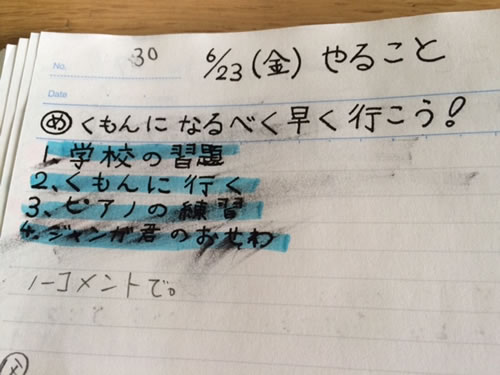 No. 30
6/23(金) やること
Date
め くもんに なるべく早く行こう!
1. 学校の習題
2、くもんに行く
3、ピアノの練習
4. ジャンガ君のおせわ
ノーコメントで。